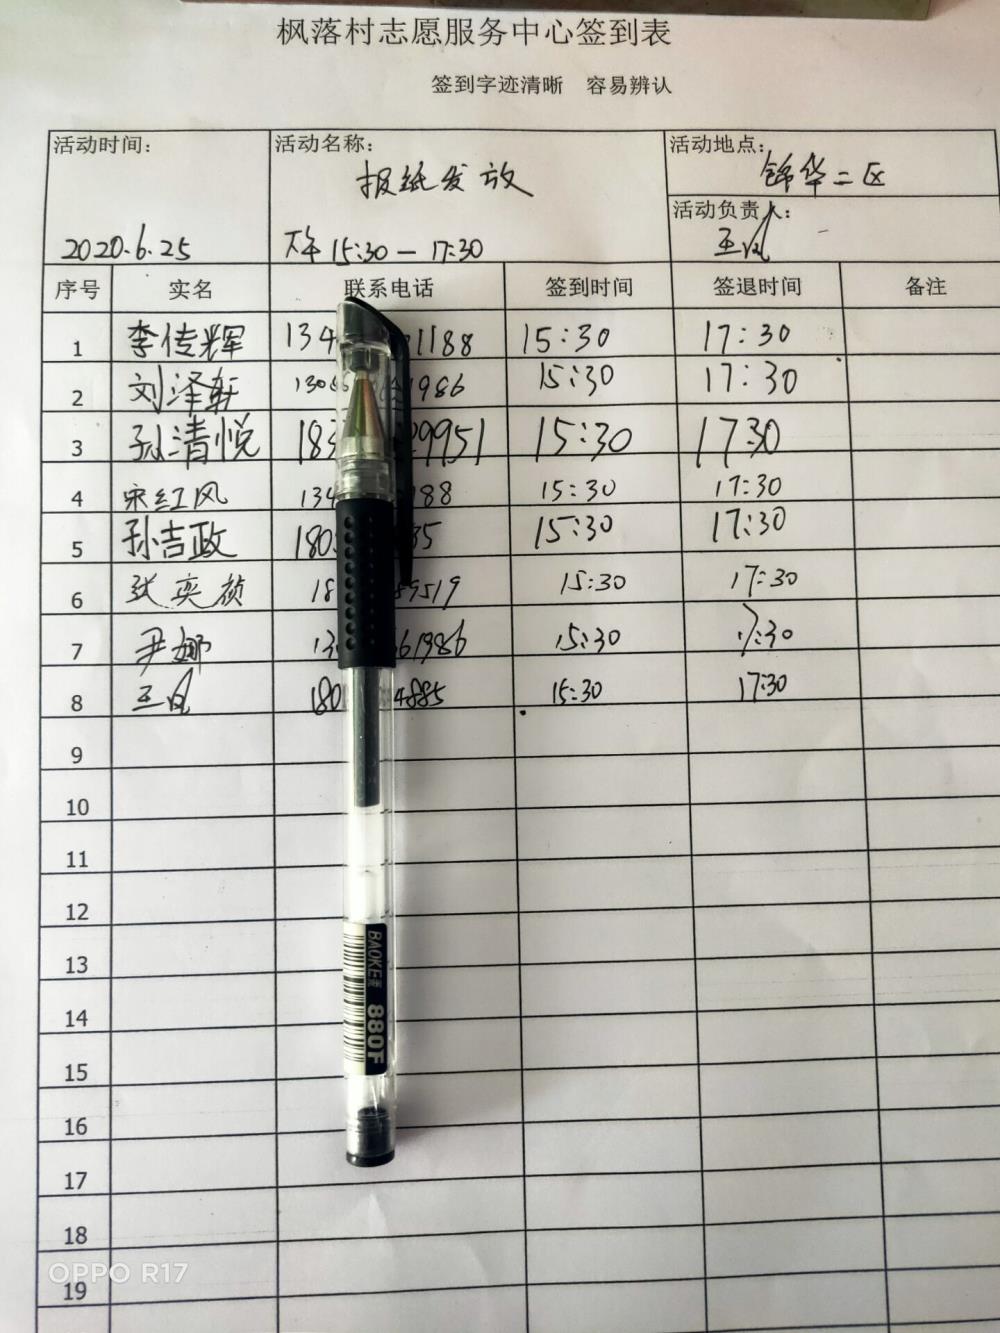 枫落村志愿服务中心签到表
签到字迹清晰 容易辨认
活动时间: 活动名称: 活动地点:
报纸发放 锦华二区
活动负责人:
2020.6.25 下午15:30—17:30 王凤
序号 实名 联系电话 签到时间 签退时间 备注
1 李传辉 134 1188 15:30 17:30
2 刘泽轩 130 986 15:30 17:30
3 孙清悦 183 9951 15:30 1730
4 宋红凤 134 188 15:30 17:30
5 孙吉政 180 35 15:30 17:30
6 张奕祯 18 9519 15:30 17:30
7 尹娜 13 61986 15:30 17:30
8 王凤 180 4885 15:30 17:30
9
10
11
12
13
14
15
16
17
18
19
BAOKE 880F
OPPO R17